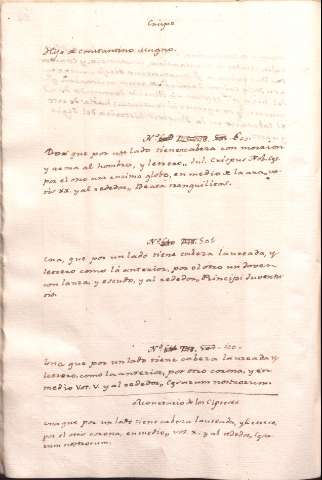 Crispo
Hijo de Constantino Magno.
Dos que por un lado tiene cabeza con morrion
y arma al hombro, y letrero, Jul. Crispus Nob. Cęs.
por el otro una encimo globo, en medio de la ara, vo-
tis XX. y al rededor, Beata tranquillitas.
una, que por un lado tiene cabeza laureada, y
letrero como la anterior, por el otro un joven
con lanza, y escudo, y al rededor, Principi Juventu-
tis.
una que por un lado tiene cabeza laureada y
letrero, como la anterior, por otro corona, y en
medio Vot. V. y al rededor, Cęsarum nostrorum.
Monetario de los Cipreses
una que por un lado tiene cabeza laureada, y letrero,
por el otro corona, en medio, vot. X. y al rededor, Cęsa-
rum nostrorum.